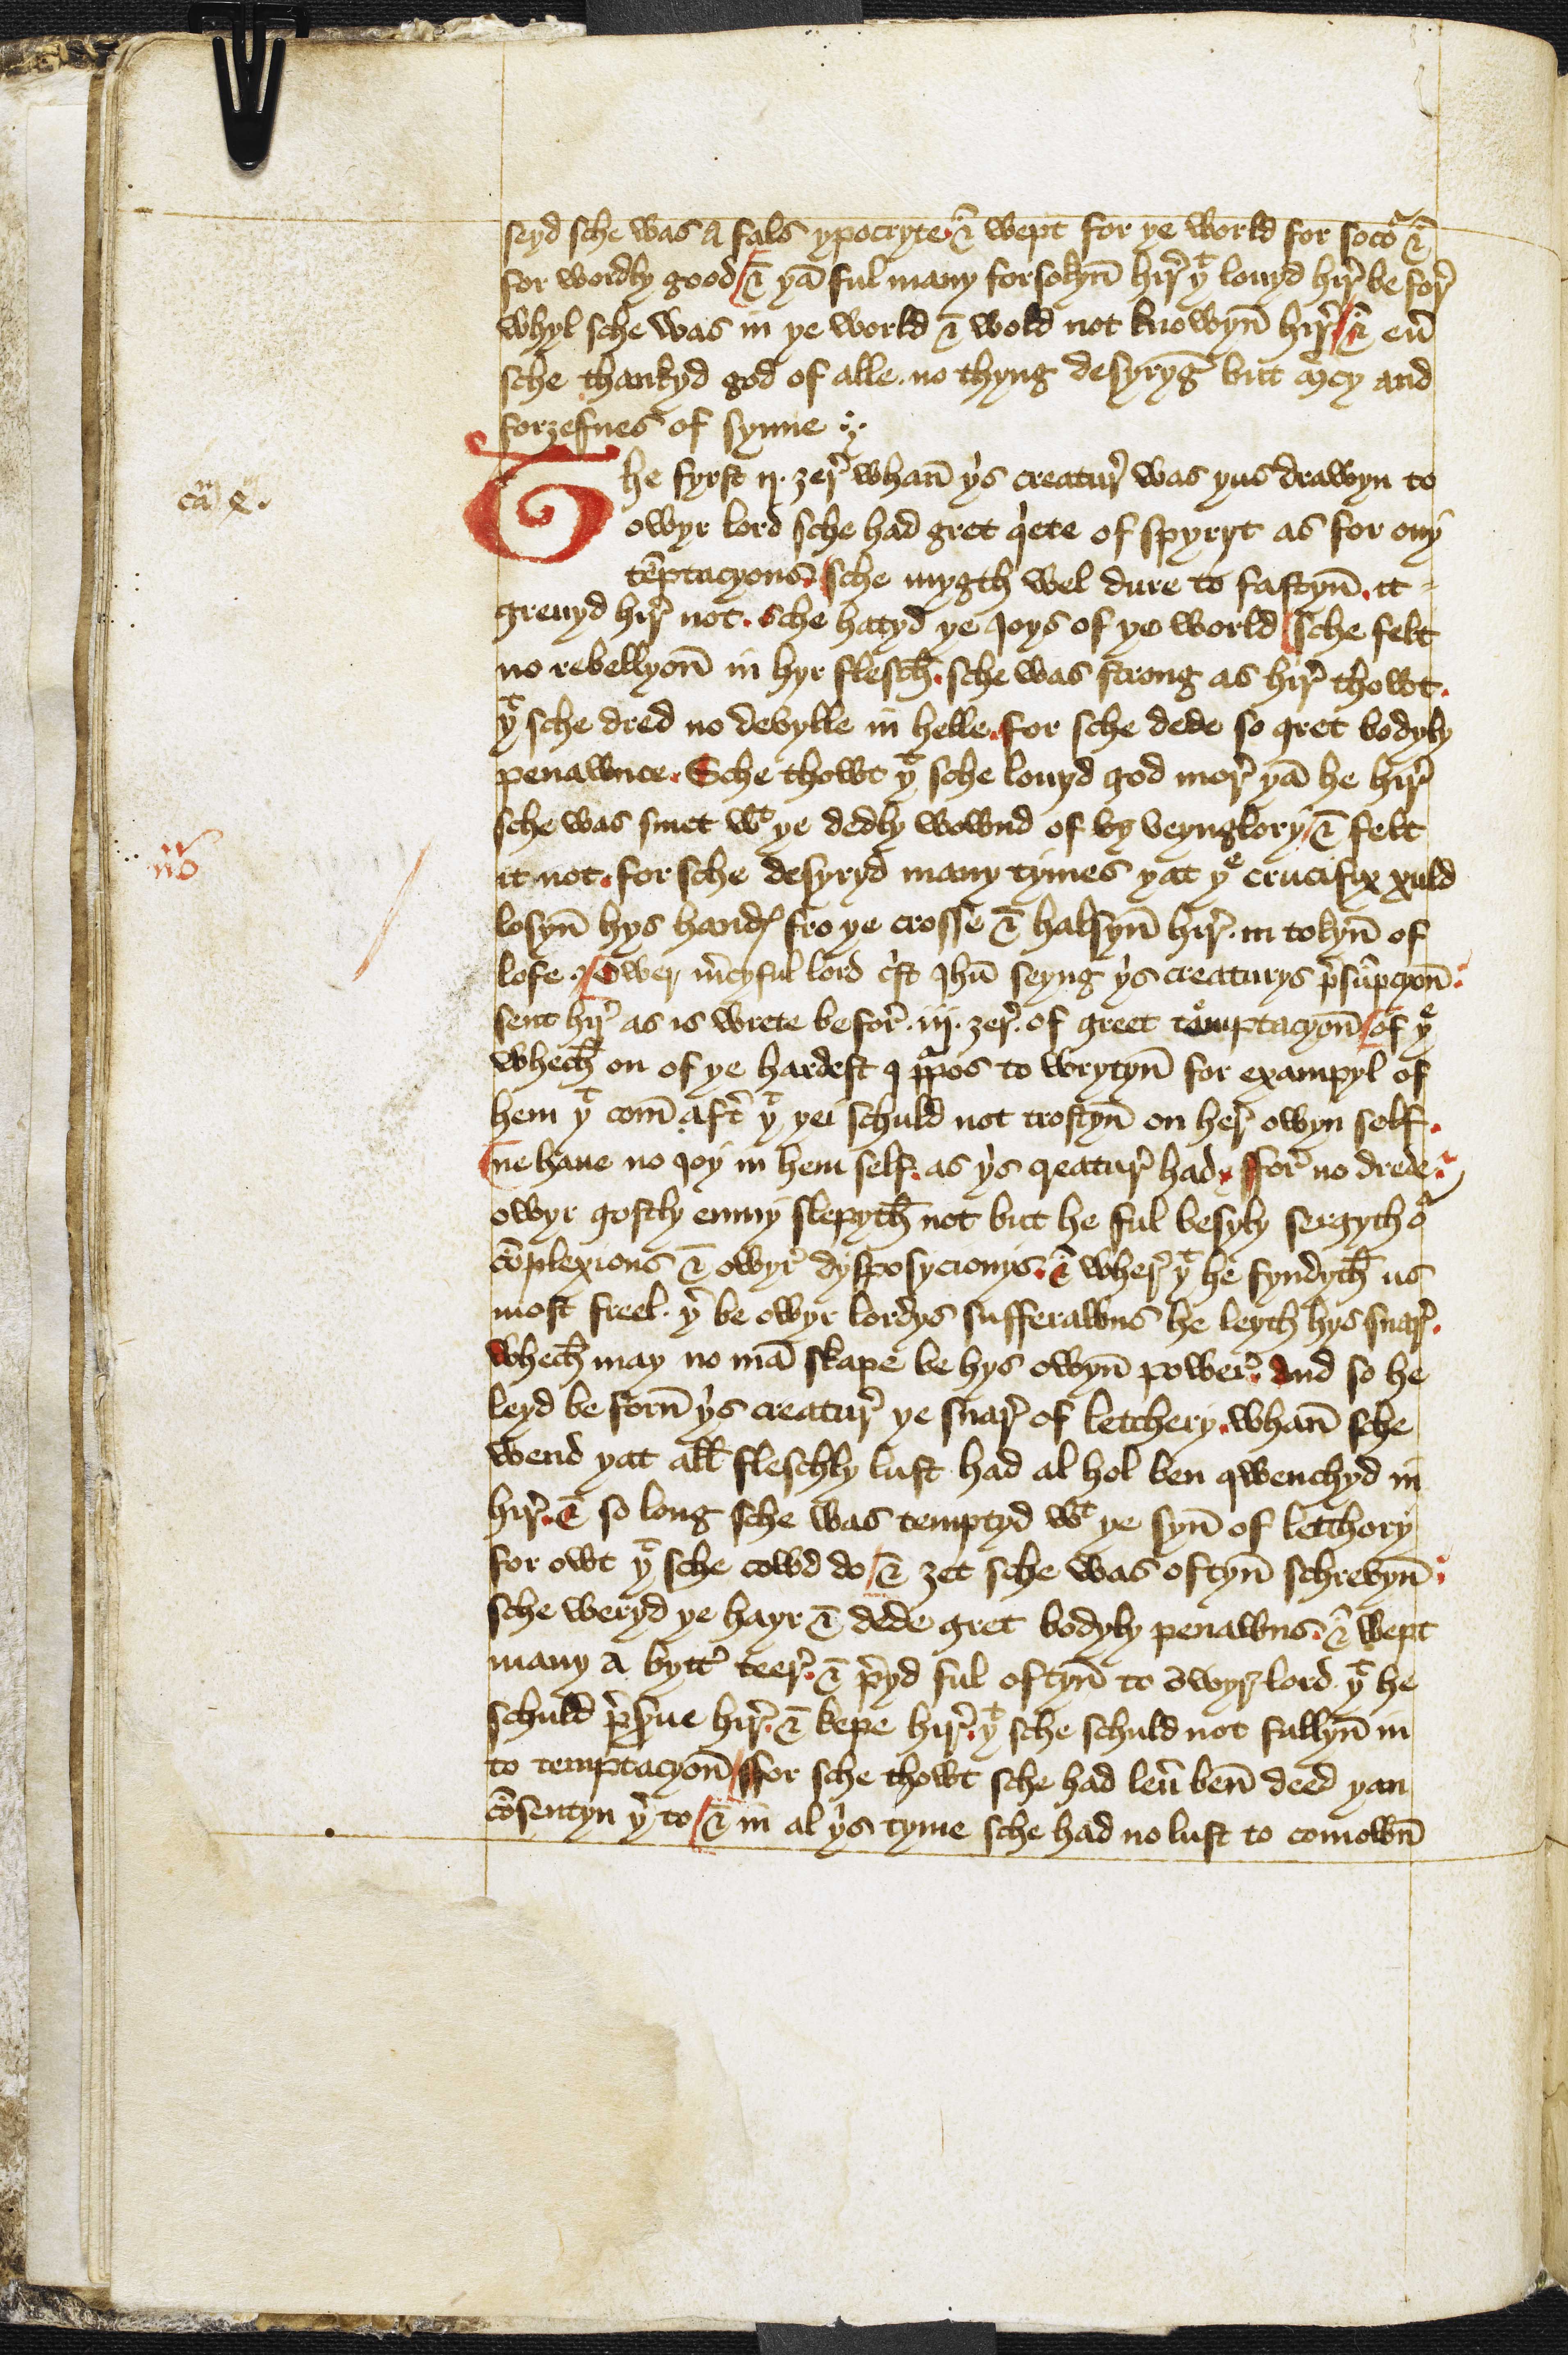 seyd sche was A fals ypocryte. & wept for ye world for socoᵘ̅ &
for wordly good / & yā ful many forsokyn̄ hir̄ yᵗ louyd hir̄ be for̄
whyl sche was in ye world & wold not knowyn̄ hir̄ / & eū
sche thankyd god of alle. no thyng desyryg̅ but m̄cy and
forȝefnes of synne
The fyrst ij. ȝer̄ whan̄ yⁱs creatur̄ was yus drawyn to
caᵐ .
owyr lord sche had gret qⁱete of spyryt as for ony
tēptacyons. sche mygth wel dure to fastyn̄. it
greuyd hir̄ not. Sche hatyd ye Joys of ye world / sche felt
no rebellyon̄ in hyr flesch̄. sche was strong as hir̄ thowt.
yᵗ sche dred no devylle in helle. for sche dede so gret bodyly
penawnce. Sche thowt yᵗ sche louyd god mor̄ yā he hir̄
sche was smet wᵗ ye dedly wownd of vy veynglory / & felt
nō
it not. for sche desyryd many tymes yat yᵉ crucifix xuld
losyn̄ hys handꝭ fro ye crosse & halsyn̄ hir̄. in tokyn̄ of
lofe. / Ower m̄cyful lord cⁱst Jhū seyng yⁱs creaturys p̄sūpcyon̄.
sent hir̄ as is wrete befor̄. iij. ȝer̄. of greet temptacyon̄ / of yᵉ
whech̄ on of ye hardest I p̄pos to wrytyn̄ for exampyl of
hem yᵗ com̄ aftᵉ̄ yᵗ yei schuld not trostyn̄ on her̄ owyn self.
ne haue no Joy in hem self. as yⁱs creatur̄ had. ffor̄ no drede.
owyr gostly enmy slepyth̄ not but he ful besyly sergyth oᵘ̅
cōplexions & owyr̄ dysposycionys. & wher̄ yᵗ he fyndyth̄ us
most freel. yᵉ̄ be owyr lordys sufferawns he leyth hys snar̄.
Whech̄ may no mā skape be hys owyn̄ power̄. And so he
leyd be forn̄ yⁱs creatur̄ ye snar̄ of letchery. whan̄ sche
wend yat all̄ fleschly lust had al hol ben qwenchyd in
hir̄. & so long sche was temptyd wᵗ ye syn̄ of letchory
for owt yᵗ sche cowd do / & ȝet sche was oftyn̄ schrevyn̄.
sche weryd ye hayr & dede gret bodyly penawns. & wept
many A byttᵉ̄ teer̄. & p̄yd ful oftyn̄ to owyr lord. yᵗ he
schuld p̄s̄ue hir̄. & kepe hir̄. yᵗ sche schuld not fallyn̄ in
to temptacyon̄ / ffor sche thowt sche had leū ben̄ deed yan
cōsentyn yᵉ̄ to / & in al yⁱs tyme sche had no lust to comown̄